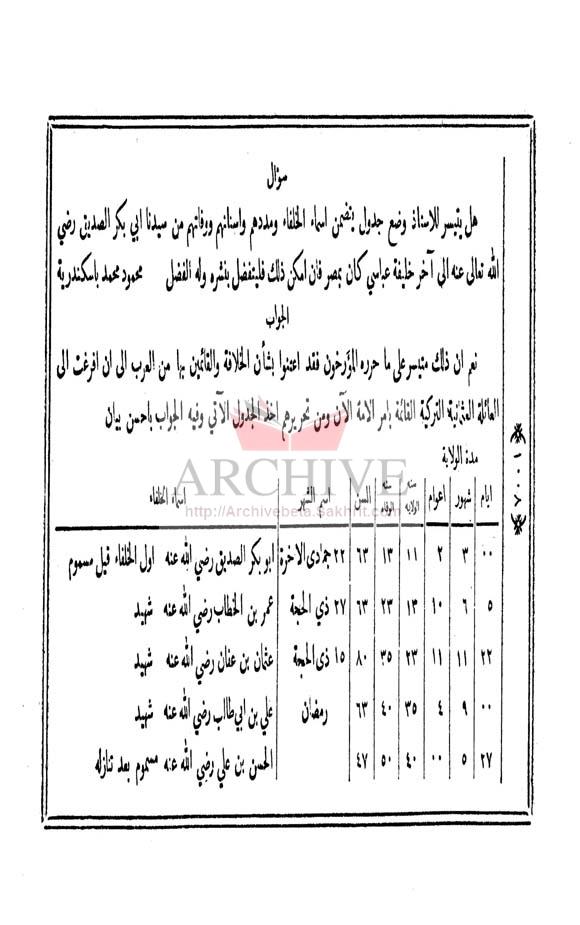 سؤال
هل يتيسر للاستاذ وضع جدول يتضمن اسماء الخلفاء ومددهم واسنانهم ووفاتهم من سيدنا ابي بكر الصديق رضي
الله تعالى عنه الى آخر خليفة عباسي كان بمصر فان امكن ذلك فليتفضل بنشره وله الفضل محمود محمد باسكندرية
الجواب
نعم ان ذلك متيسر على ما حرره المؤرخون فقد اعتنوا بشأن الخلافة والقائمين بها من العرب الى ان افرغت الى
العائلة العثمانية التركية القائمة بامر الامة الآن ومن تحريرهم اخذ الجدول الآتي وفيه الجواب باحسن بيان
مدة الولاية
ايام شهور اعوام سنة الولايه سنة الوفاه السن اسم الشهر اسماء الخلفاء
٠٠ ٣ ٢ ١١ ١٣ ٦٣ ٢٢ جمادى الاخرة ابو بكر الصديق رضي الله عنه اول الخلفاء قيل مسموم
٥ ٦ ١٠ ١٣ ٢٣ ٦٣ ٢٧ ذي الحجة عمر بن الخطاب رضي الله عنه شهيد
٢٢ ١١ ١١ ٢٣ ٣٥ ٨٠ ١٥ ذى الحجة عثمان بن عفان رضي الله عنه شهيد
٠٠ ٩ ٤ ٣٥ ٤٠ ٦٣ رمضان علي بن ابي طالب رضي الله عنه شهيد
٢٧ ٥ ٠٠ ٤٠ ٥٠ ٤٧ الحسن بن علي رضي الله عنه مسموم بعد تنازله
ARCHIVE
http://Archivebeta.Sakhrit.com